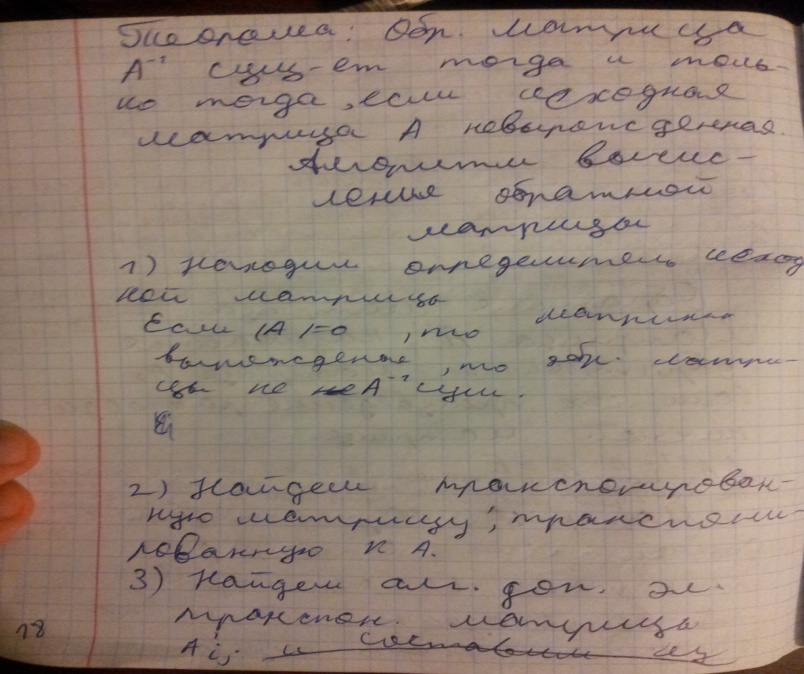 Теорема: Обр. матрица
A⁻¹ сущ-ет тогда и толь-
ко тогда, если исходная
матрица A невырожденная.
Алгоритм вычис-
ления обратной
матрицы
1) Находим определитель исход
ной матрицы
Если |A|=0, то матрица
вырожденая, то обр. матри-
цы не не A⁻¹ сущ.
2) Найдем транспонирован-
ную матрицу, транспони-
рованную к A.
3) Найдем алг. доп. эл.
транспон. матрицы
Aij и составим из
18